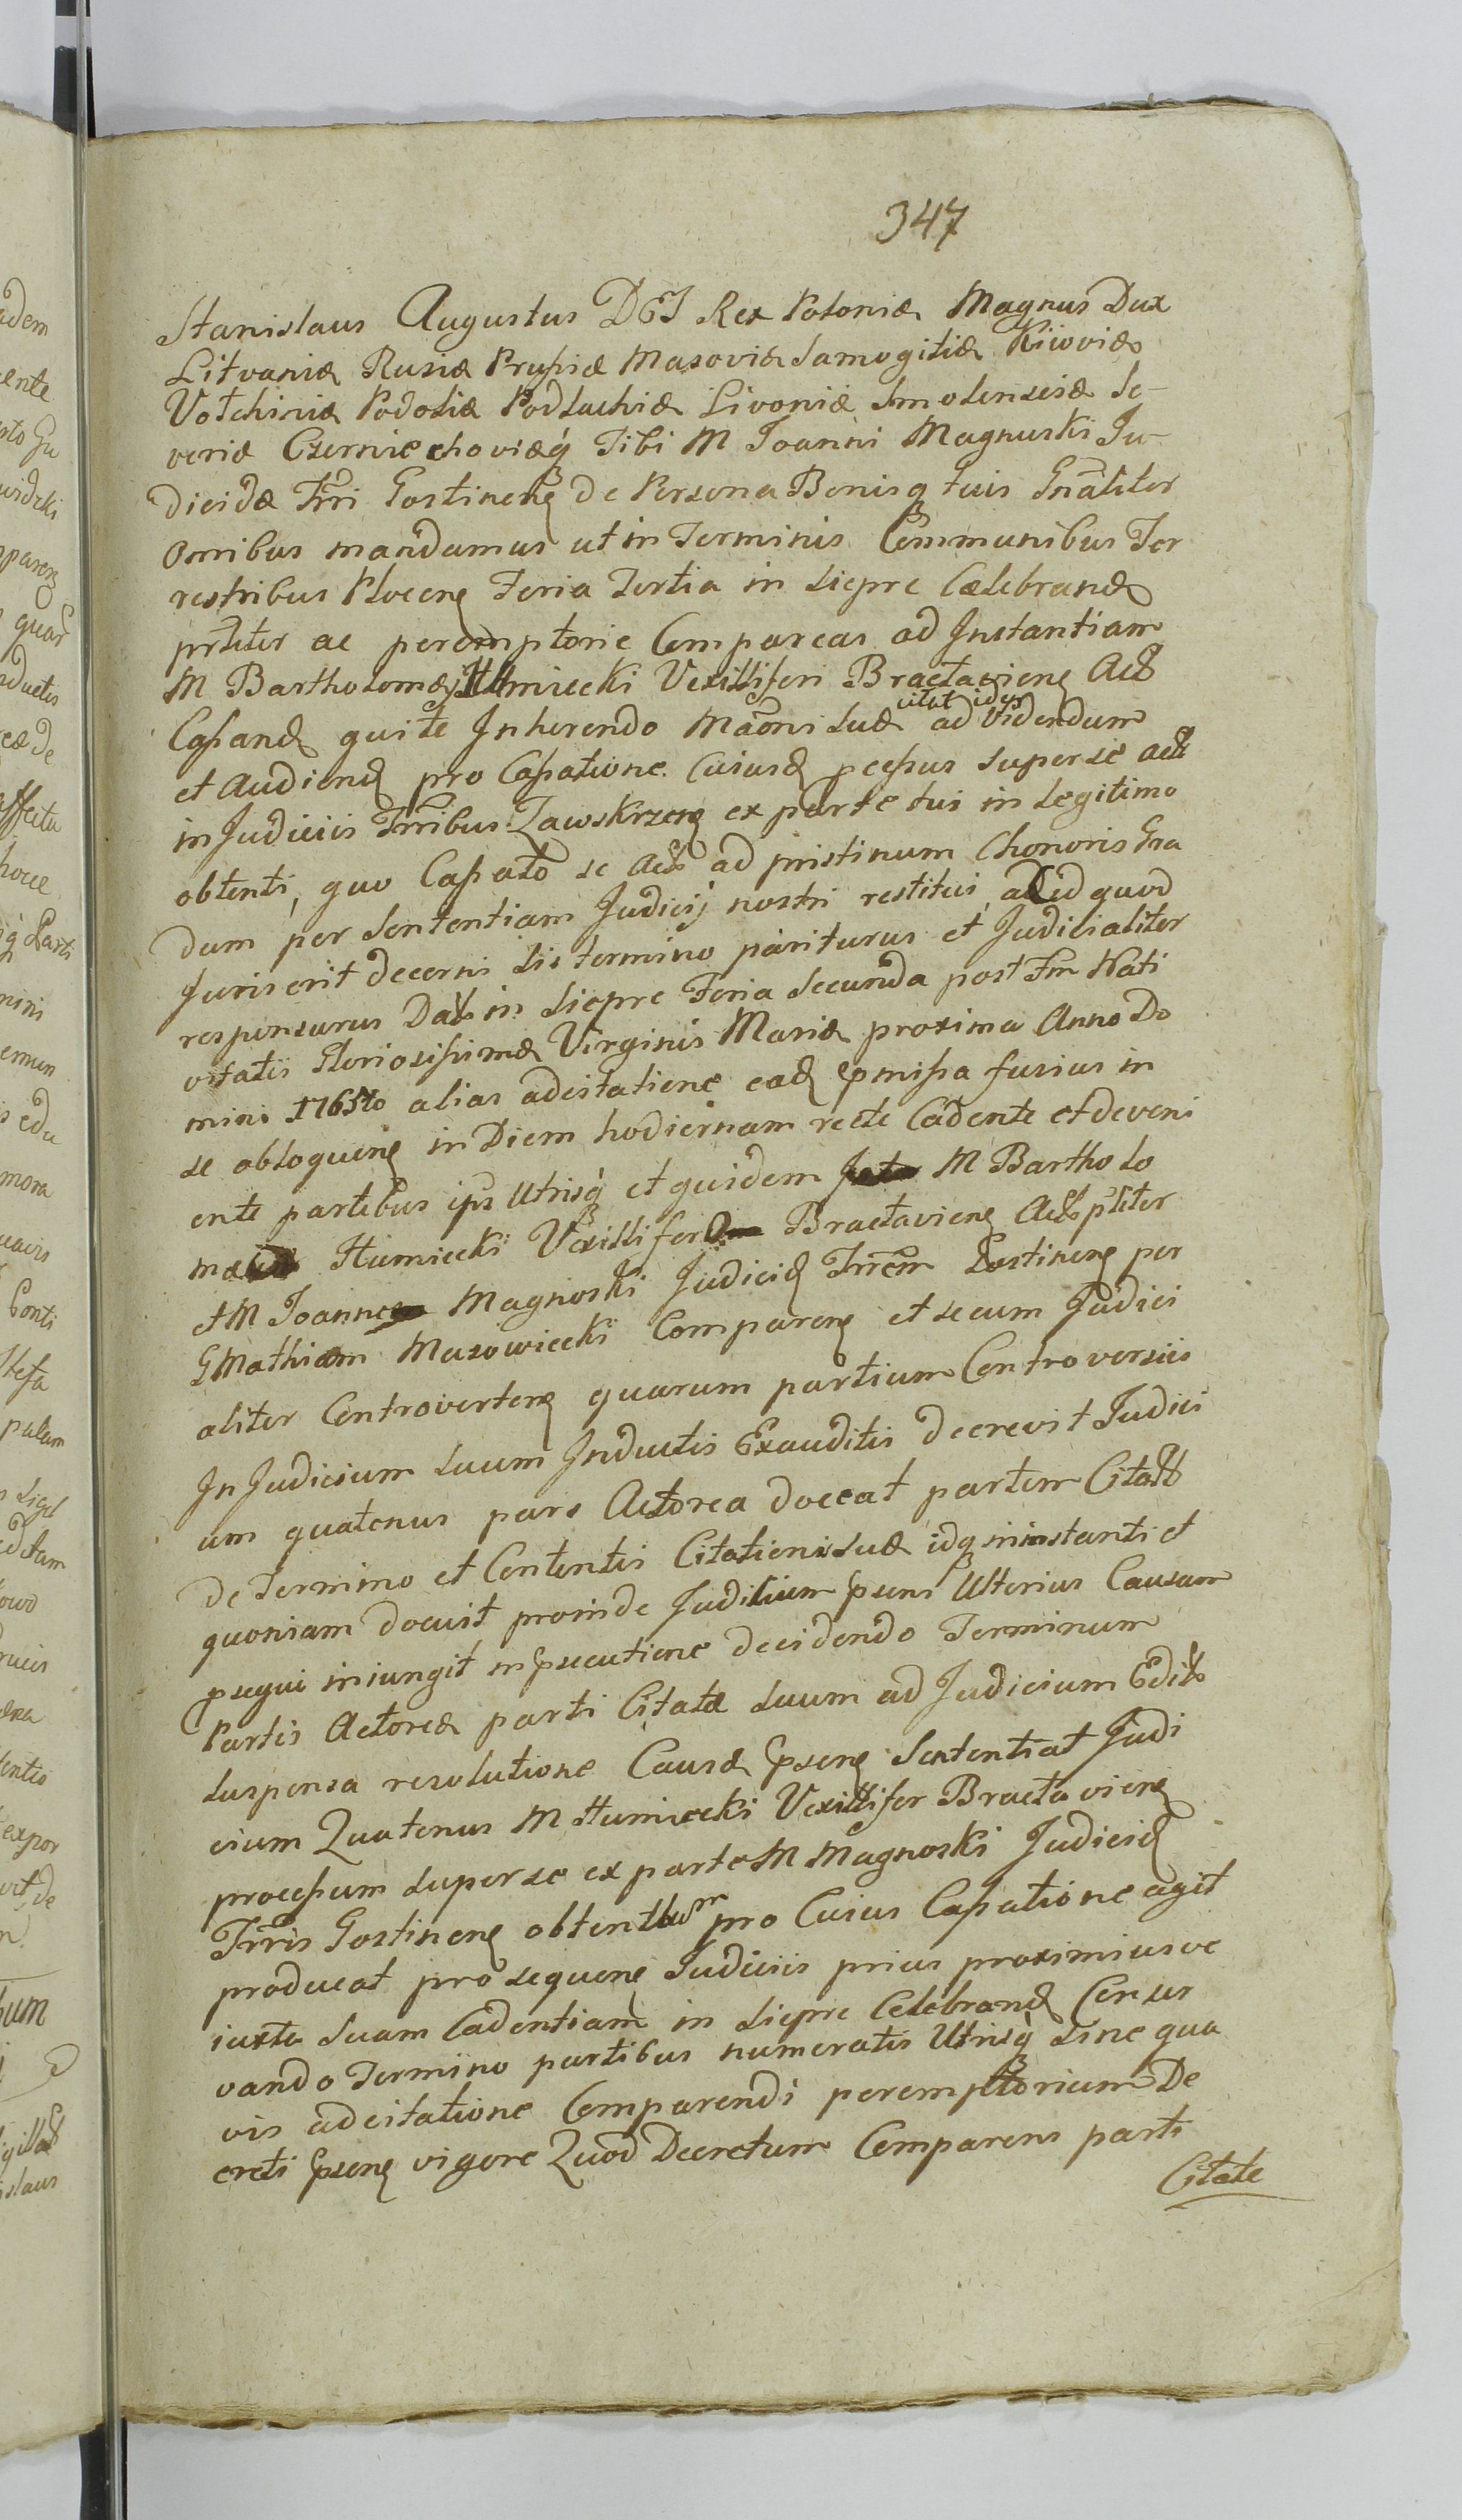 347
Stanislaus Augustus DGJ Rex Poloniæ Magnus Dux
Litvaniæ Rusiæ Prußiæ Masoviæ Samogitiæ Kiioviæ
Volchiniæ Podoliæ Podlachiæ Livoniæ Smolensciæ Se-
veriæ Czerniechoviæq́ Tibi M Joanni Magnuski Ju-
dicidæ Trri Gostinenʒ de Persona Bonisq tuis Gnãliter
Omnibus mandamus ut in Terminis Communibus Ter
restribus Plocenʒ Feria Tertia in Siepre Cælebrandʒ
prliter ac peremptorie Compareas ad Instantiam
M Bartholomæj Humiecki Vexilliferi Bractavienʒ Act
citat idqʒ
Caßandʒ qui te Inherendo Maõni Suæ ad Videndum
et Audiendʒ pro Caßatione Cuiusdʒ pceßus super se act
in Judiciis Trribus Zawskrzenʒ ex parte tui in legitimo
obtenti, quo Caßato se Act ad pristinum Chonoris Gra
dum per Sententiam Judicij nostri restitui, ad id quod
Juris erit decerni Sis termino pariturus et Judicialiter
responsurus Dat in Siepre Feria Secunda post Fm Nati
vitatis Gloriosißimæ Virginis Mariæ proxima Anno Do
mini 1765to alias adcitatione eadʒ pmißa fusius in
se obloquenʒ in Diem hodiernam recte Cadente et deveni
ente partibus ips Utrisq́ et quidem M Bartholo
mæo Humiecki Vexillifero Bractavienʒ Act pliter
et M Joanne Magnoski Judicidʒ Trrem Gostinenʒ per
G Mathiam Mazowiecki Comparenʒ et secum Judici
aliter Controvertenʒ quarum partium Controversiis
In Judicium Suum Inductis Exauditis decrevit Judici
um quatenus pars Actorea doceat partem Citatt
de Termino et Contentis Citationis Suæ idq in instanti et
quoniam docuit proinde Judicium psens Ulterius Causam
psequi iniungit in psecutione decidendo Terminum
Partis Actoreæ parti Citatæ Suum ad Judicium Edit
Suspensa resolutione Causæ psenʒ Sententiat Judi
cium Quatenus M Humiecki Vexillifer Bractavienʒ
proceßum super se ex parte M Magnoski Judicidʒ
Trris Gostinenʒ obtentum pro Cuius Caßatione agit
producat pro sequenʒ Judiciis prius proximiusve
iuxta Suam Cadentiam in Siepre Celebrandʒ Conser
vando Termino partibus numeratis Utrisq́ Sine qua
vis adcitatione Comparendi peremptorium De
creti psenʒ vigore Quod Decretum Comparens parti
Citate